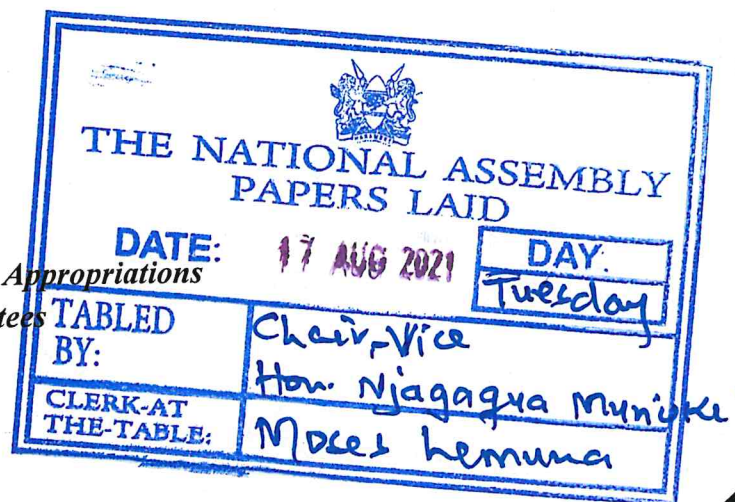 THE NATIONAL ASSEMBLY
PAPERS LAID
DATE: 17 AUG 2021 DAY:
Tuesday
Appropriations
tees
TABLED
BY:
Chair, Vice
Hon. Njagagua
CLERK-AT
THE-TABLE:
Moses Lemuna